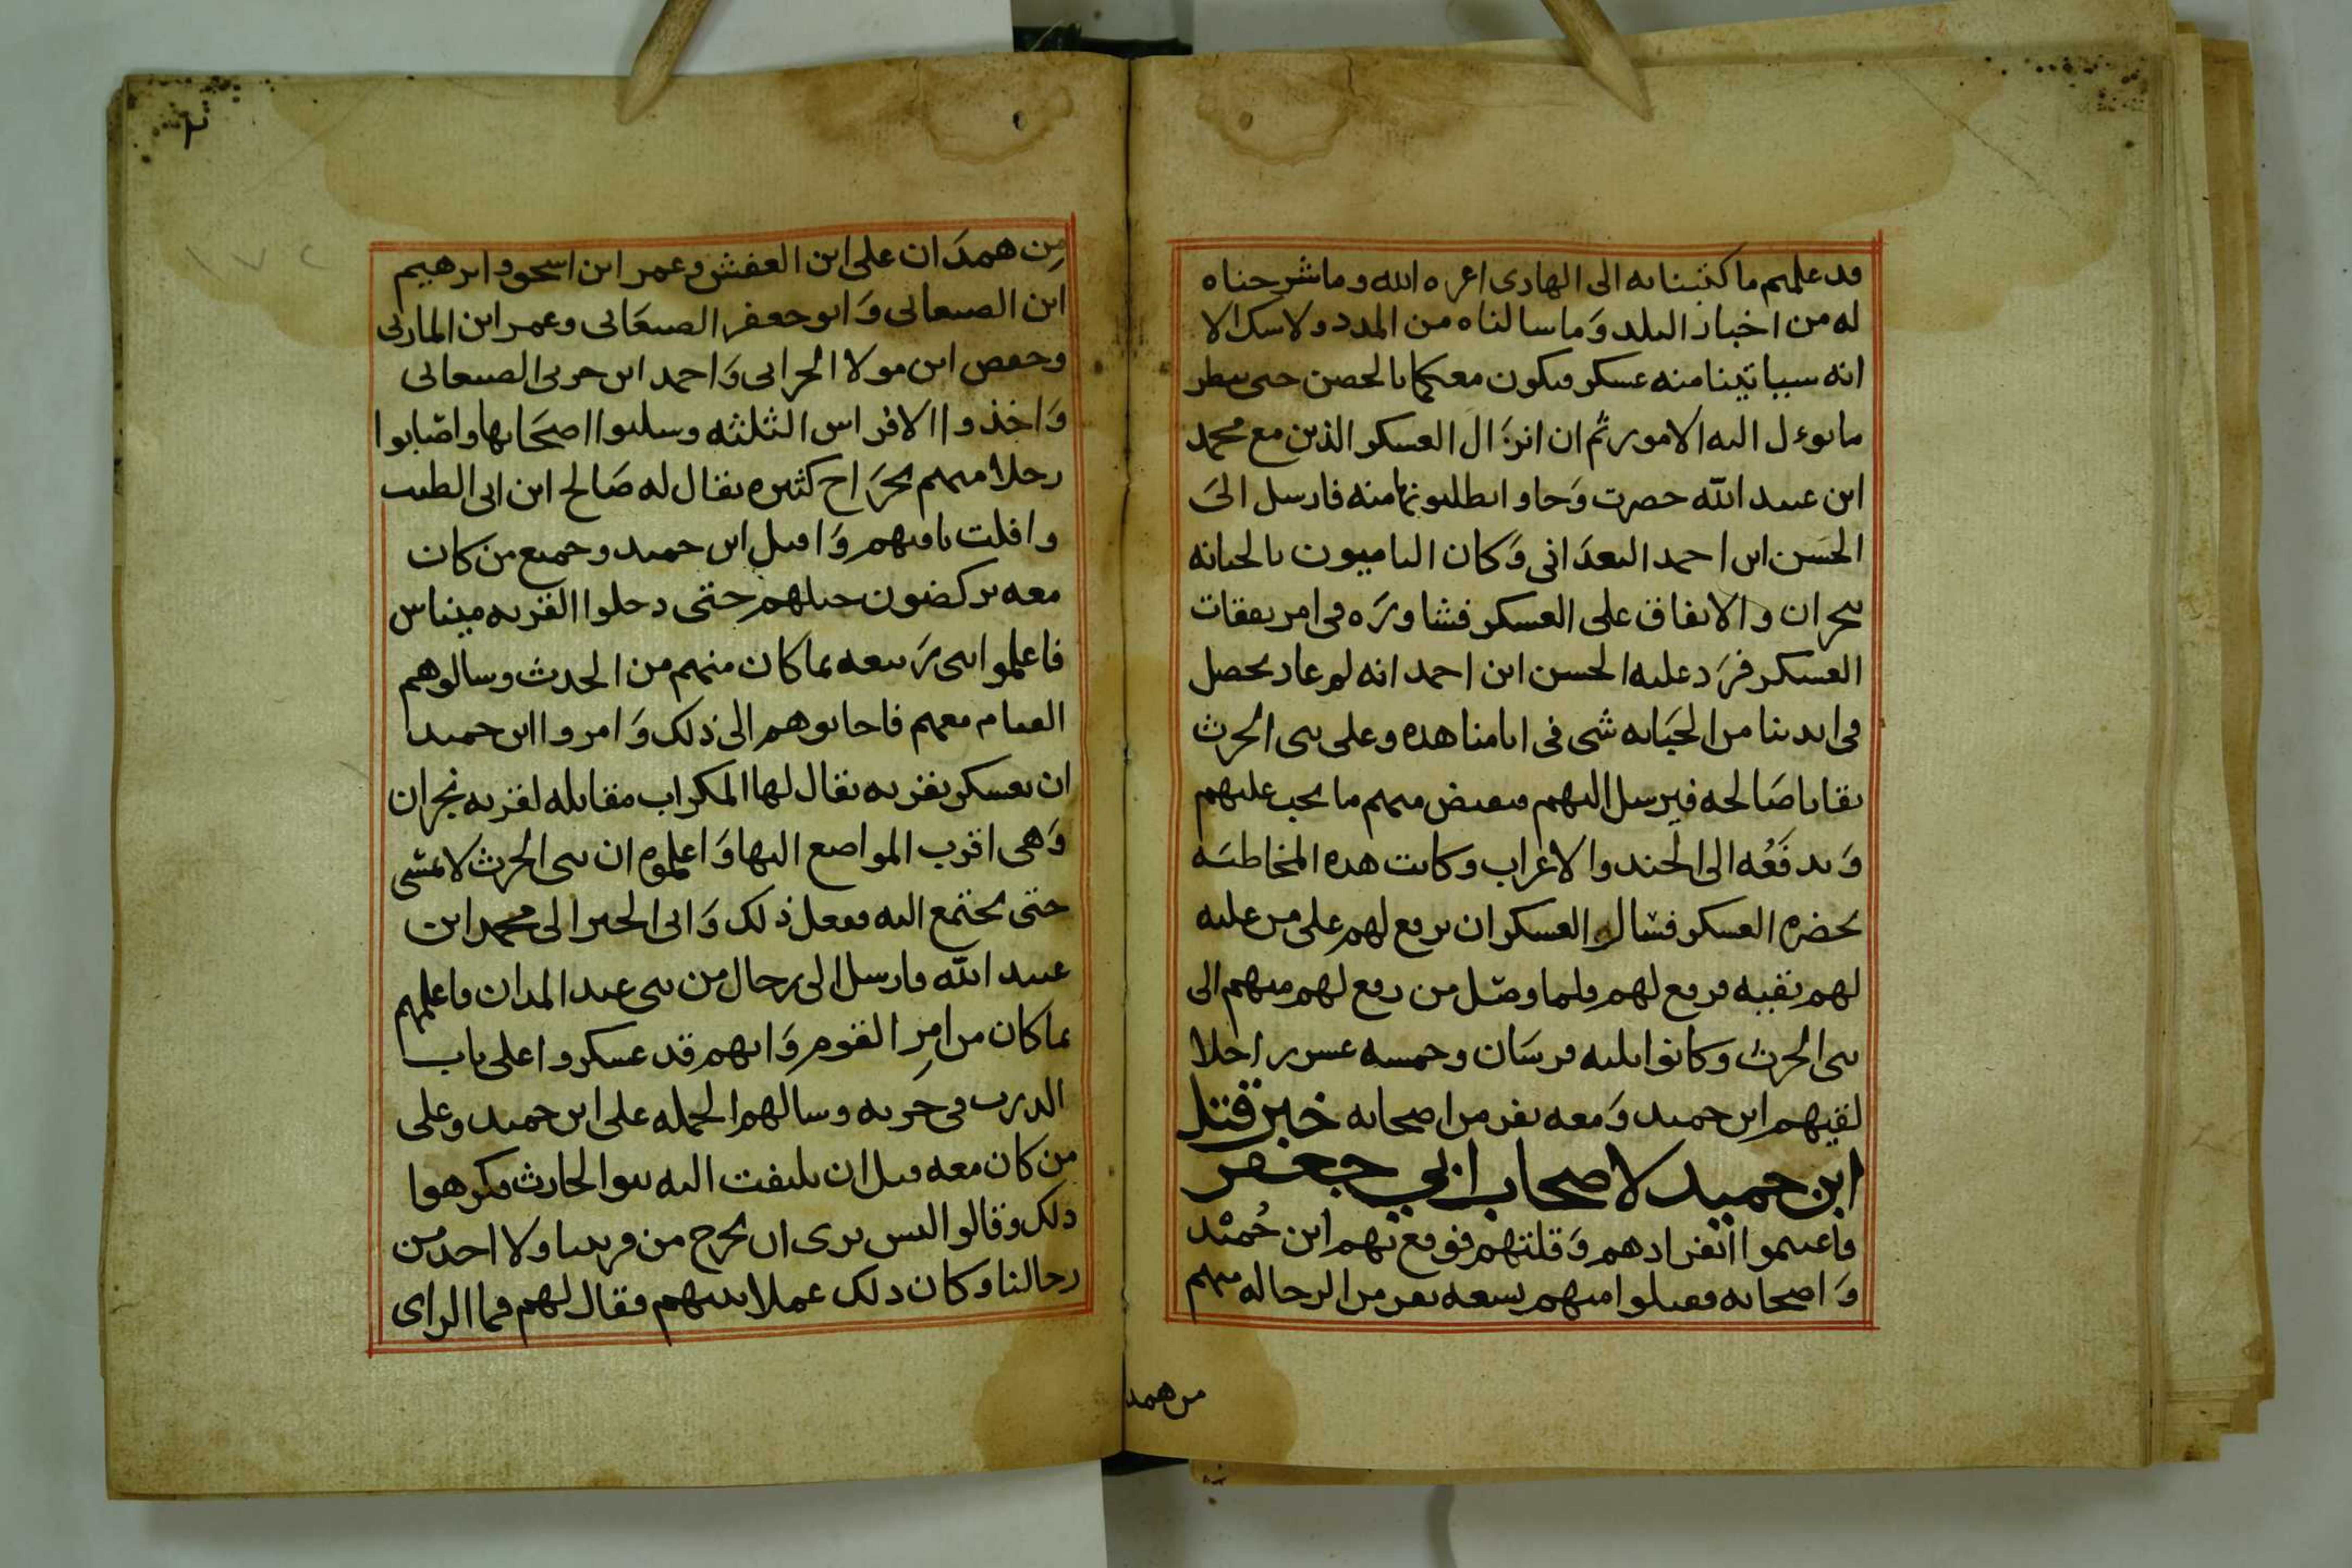 قد علمتم ما كتبنا به الى الهادى اعزه الله وما شرحناه
له من اخبار البلد وَما سالناه من المدد ولا نسك الا
انه سياتينا منه عسكر فيكون معكما بالحصن حتى ننظر
ما يوءل اليه الامور ثم ان انزَال العسكر الذين مع محمد
ابن عبيد الله حضرت وَجاوا يطلبونها منه فارسل الىَ
الحسَن ابن احمد البعدَانى وَكان الياميون بالجبانه
بنجران والانفاق على العسكر فشاورَه فى امر نفقات
العسكر فرَد عليه الحسن ابن احمد انه لم عاد يحصل
فى ايدينا من الجبَايه شى فى ايامنا هذه وعلى بنى الحرث
بقايا صَالحه فيرسل اليهم فيقبض منهم ما يجب عليهم
وَيدفَعُه الى الجند والاعراب وكانت هذه المخاطبَه
بحضره العسكر فسال العسكر ان يرفع لهم على من عليه
لهم بقيه فرفع لهم فلما وصَل من رفع لهم منهم الى
بنى الحرث وكانوا ثلثه فرسَان وخمسه عشر راجلا
لقيهم ابن حميد وَمعه نفر من اصحابه خبر قتل
ابن حميد لاصحاب ابي جعفر
فاغتنموا انفرادهم وَقلتهم فوقع بهم ابن حُميْد
وَاصحابه فقتلوا منهم تسعه نفر من الرجاله منهم
من همد
٢
١٧٢
مِن همدَان على ابن العفش وعمر ابن اسحق وابرهيم
ابن الصنعانى وَابو جعفر الصنعَانى وعمر ابن الماربى
وحفص ابن مولا الحرابى وَاحمد ابن حربى الصنعانى
وَاخذوا الافراس الثلثه وسلبوا اصحَابها واصَابوا
رجلا منهم بجرَاح كثيره يقال له صَالح ابن ابى الطيب
وافلت باقيهم وَاقبل ابن حميد وجميع من كان
معه يركضون خيلهم حتى دخلوا القريه ميناس
فاعلموا بنى رَبيعه بما كان منهم من الحدث وسالوهم
القيام معهم فاجابوهم الى ذلك وَامروا ابن حميد
ان يعسكر بقريه يقال لها المكراب مقابله لقريه نجران
وَهى اقرب المواضع اليها وَاعلموه ان بنى الحرث لا تمسى
حتى تجتمع اليه ففعل ذلك وَاتى الخبر الى محمد ابن
عبيد الله فارسل الى رجال من بنى عبد المدان فاعلمهم
بما كان من امرِ القوم وَانهم قد عسكروا على باب
الدرب فى خرِبه وسالهم الحمله على ابن حميد وعلى
من كان معه قبل ان يلتفت اليه بنوا الحارث فكرهوا
ذلك وقالوا ليس نرى ان نخرج من قريتنا ولا احد من
رجالنا وكان ذلك عملا بينهم فقال لهم فما الراى